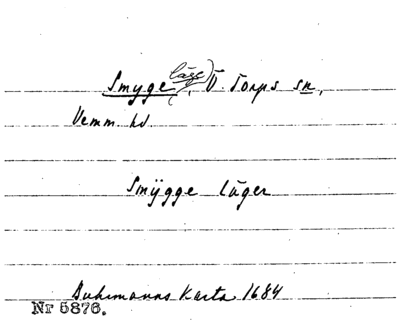 Smyge (läge), V. Torps sn,
Vemm. hd.
Smÿgge Läger
Buhrmanns Karta 1684
Nr 5876.